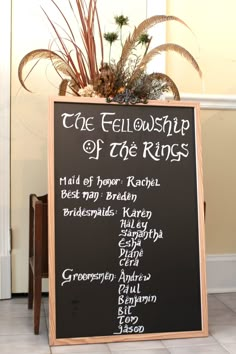 The Fellowship
of the Rings
Maid of honor: Rachel
Best man: Breden
Bridesmaids: Karen
Haley
Samantha
Esha
Diane
Cera
Groomsmen: Andrew
Paul
Benjamin
Bit
Tom
Jason